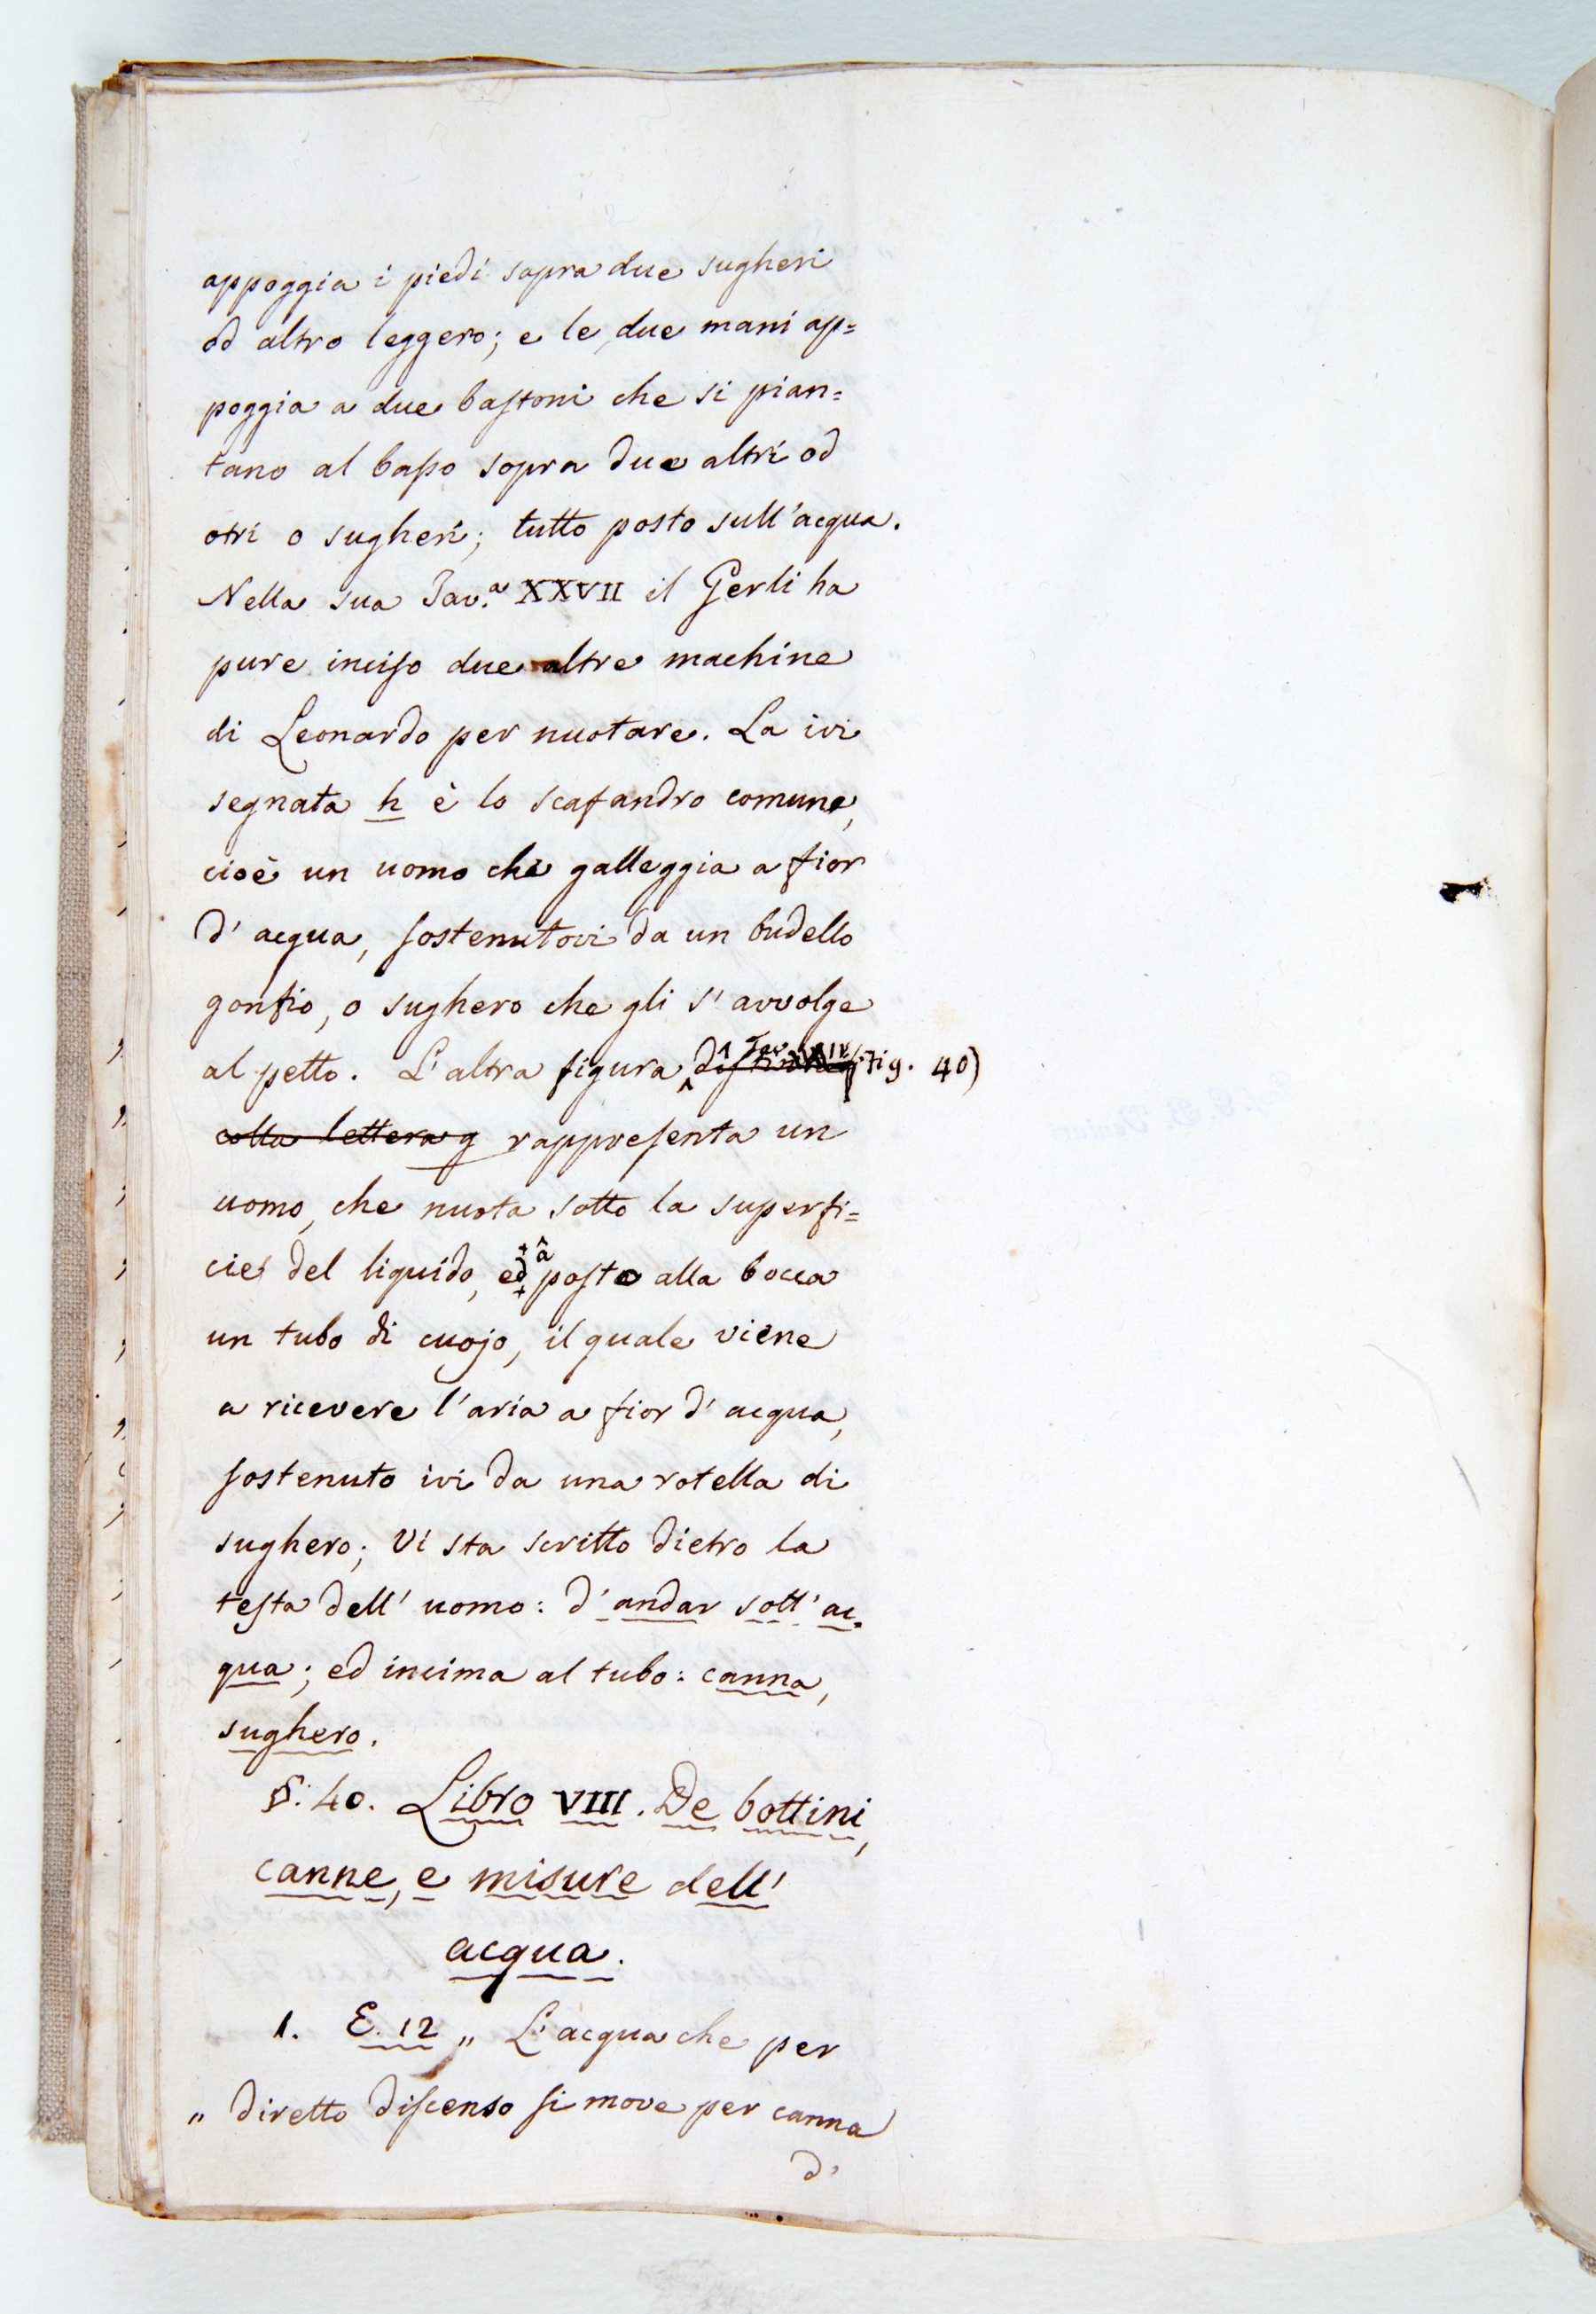 appoggia i piedi sopra due sugheri
od altro leggero; e le due mani ap=
poggia a due bastoni che si pian=
tano al basso sopra due altri od
otri o sugheri; tutto posto sull'acqua.
Nella sua Tav.a XXVII il Gerli ha
pure inciso due altre machine
di Leonardo per nuotare. La ivi
segnata h è lo scafandro comune,
cioè un uomo che galleggia a fior
d'acqua, sostenutovi da un budello
gonfio, o sughero che gli s'avvolge
al petto. L'altra figura (Fig. 40)
colla lettera g rappresenta un
uomo, che nuota sotto la superfi=
cie del liquido, ed à posto alla bocca
un tubo di cuojo, il quale viene
a ricevere l'aria a fior d'acqua,
sostenuto ivi da una rotella di
sughero; Vi sta scritto dietro la
testa dell'uomo: d'andar sott'ac=
qua; ed incima al tubo: canna,
sughero.
§. 40. Libro VIII. De bottini,
canne, e misure dell'
acqua.
1. E. 12 „ L'acqua che per
„ diretto discenso si move per canna
d'